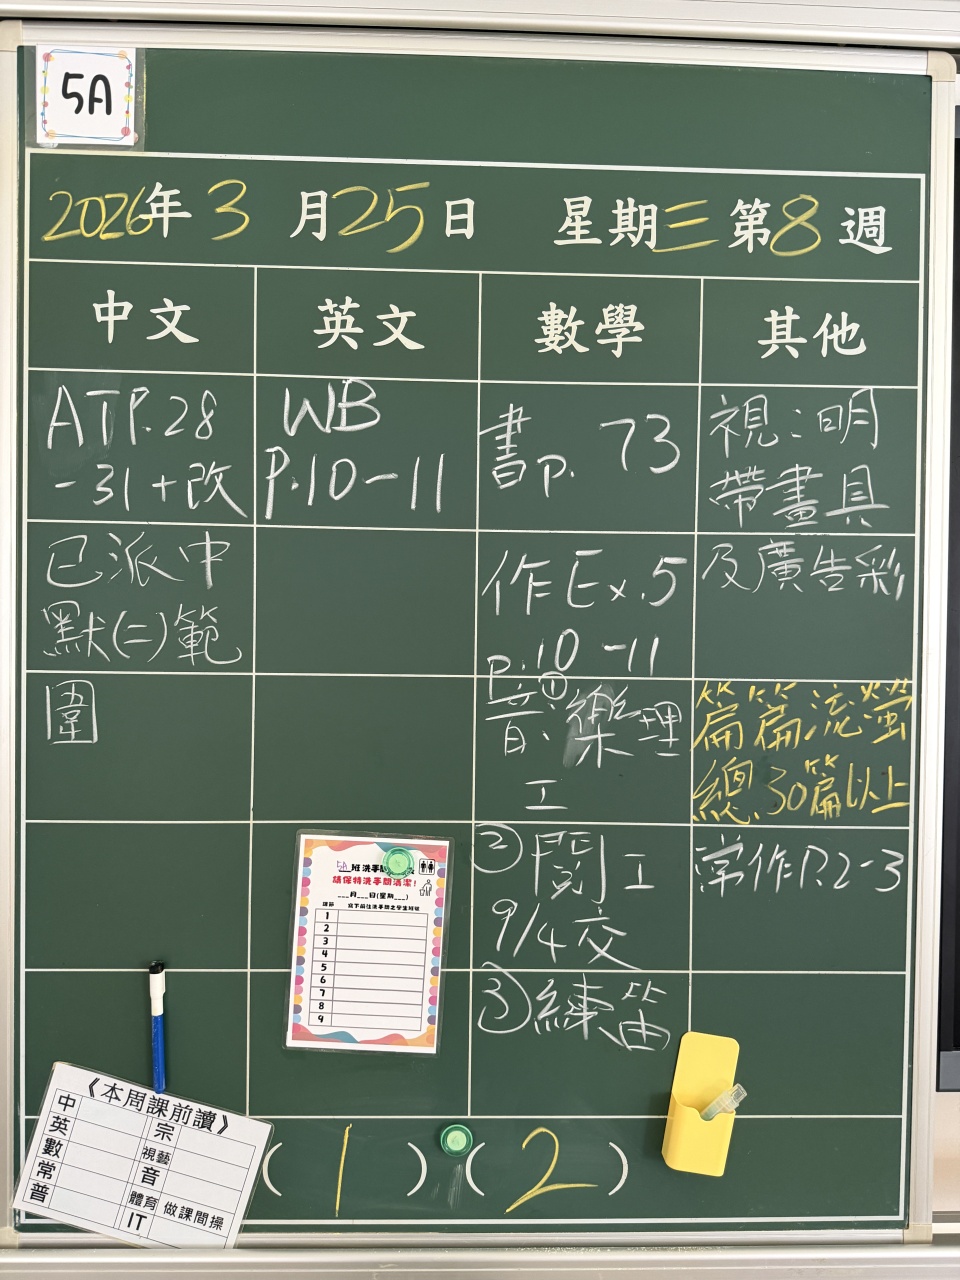 5A
2026年3月25日 星期三第8週
中文
英文
數學
其他
ATP.28
-31+改
已派中
默(二)範
圍
WB
P.10-11
書p. 73
作Ex.5
P.10-11
音:①樂理
工
②閱工
9/4交
③練笛
視:明
帶畫具
及廣告彩
篇篇流螢
總30篇以上
常作P.2-3
5A班洗手間
請保持洗手間清潔!
___月___日(星期___)
1
2
3
4
5
6
7
8
9
《本周課前讀》
中
英
數
常
普
宗
視藝
音
體育 做課間操
IT
(1) (2)